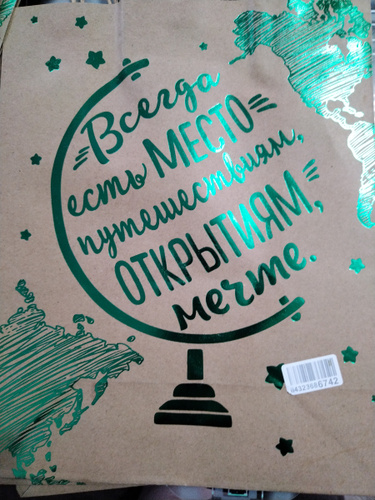 Всегда
есть МЕСТО
путешествиям,
ОТКРЫТИЯМ,
мечте.